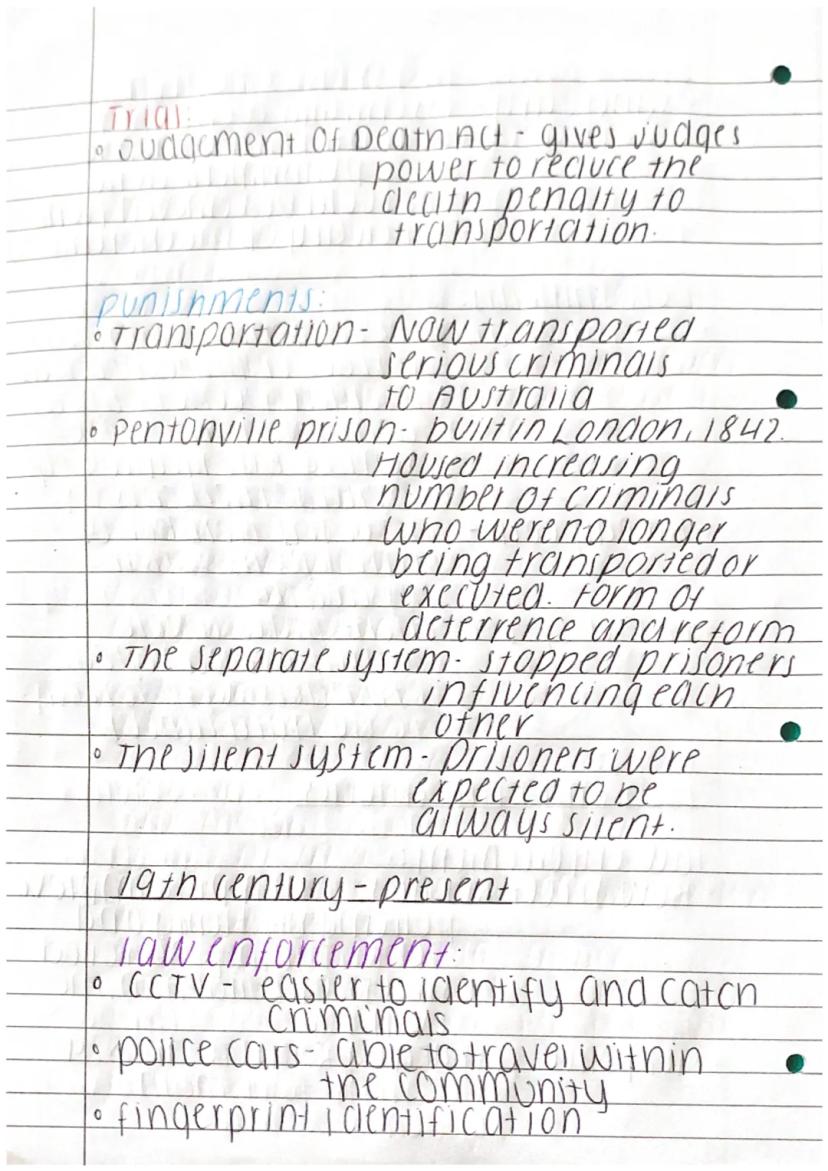 Trial:
• Judgement Of Death Act - gives judges
power to reduce the
death penalty to
transportation.
punishments:
• Transportation - Now transported
serious criminals
to Australia
• Pentonville prison - built in London, 1842.
Housed increasing
number of criminals
who were no longer
being transported or
executed. Form of
deterrence and reform
• The separate system - stopped prisoners
influencing each
other
• The silent system - Prisoners were
expected to be
always silent.
19th century - present
law enforcement:
• CCTV - easier to identify and catch
criminals
• police cars - able to travel within
the community
• fingerprint identification